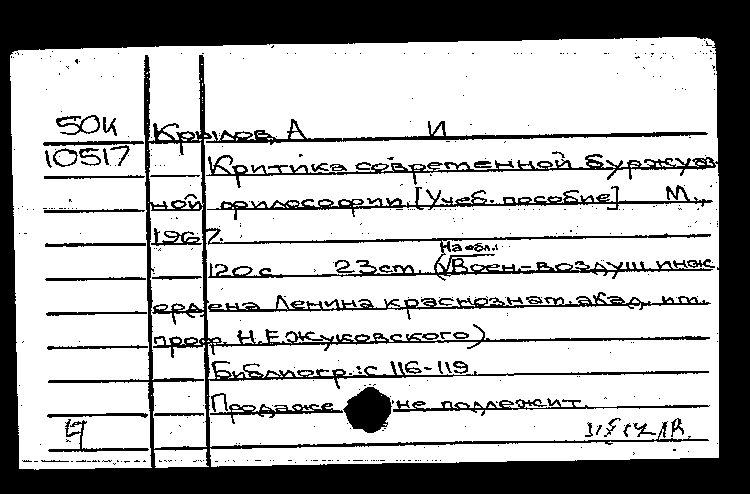 50К Крылов, А И
10517 Критика современной буржуаз
ной философии. [Учеб. пособие] М.,
1967.
На обл.:
120 с. 23 см. (√Воен.-воздуш. инж.
ордена Ленина краснознам. акад. им.
проф. Н.Е.Жуковского).
Библиогр.: с 116-119.
Продаже не подлежит.